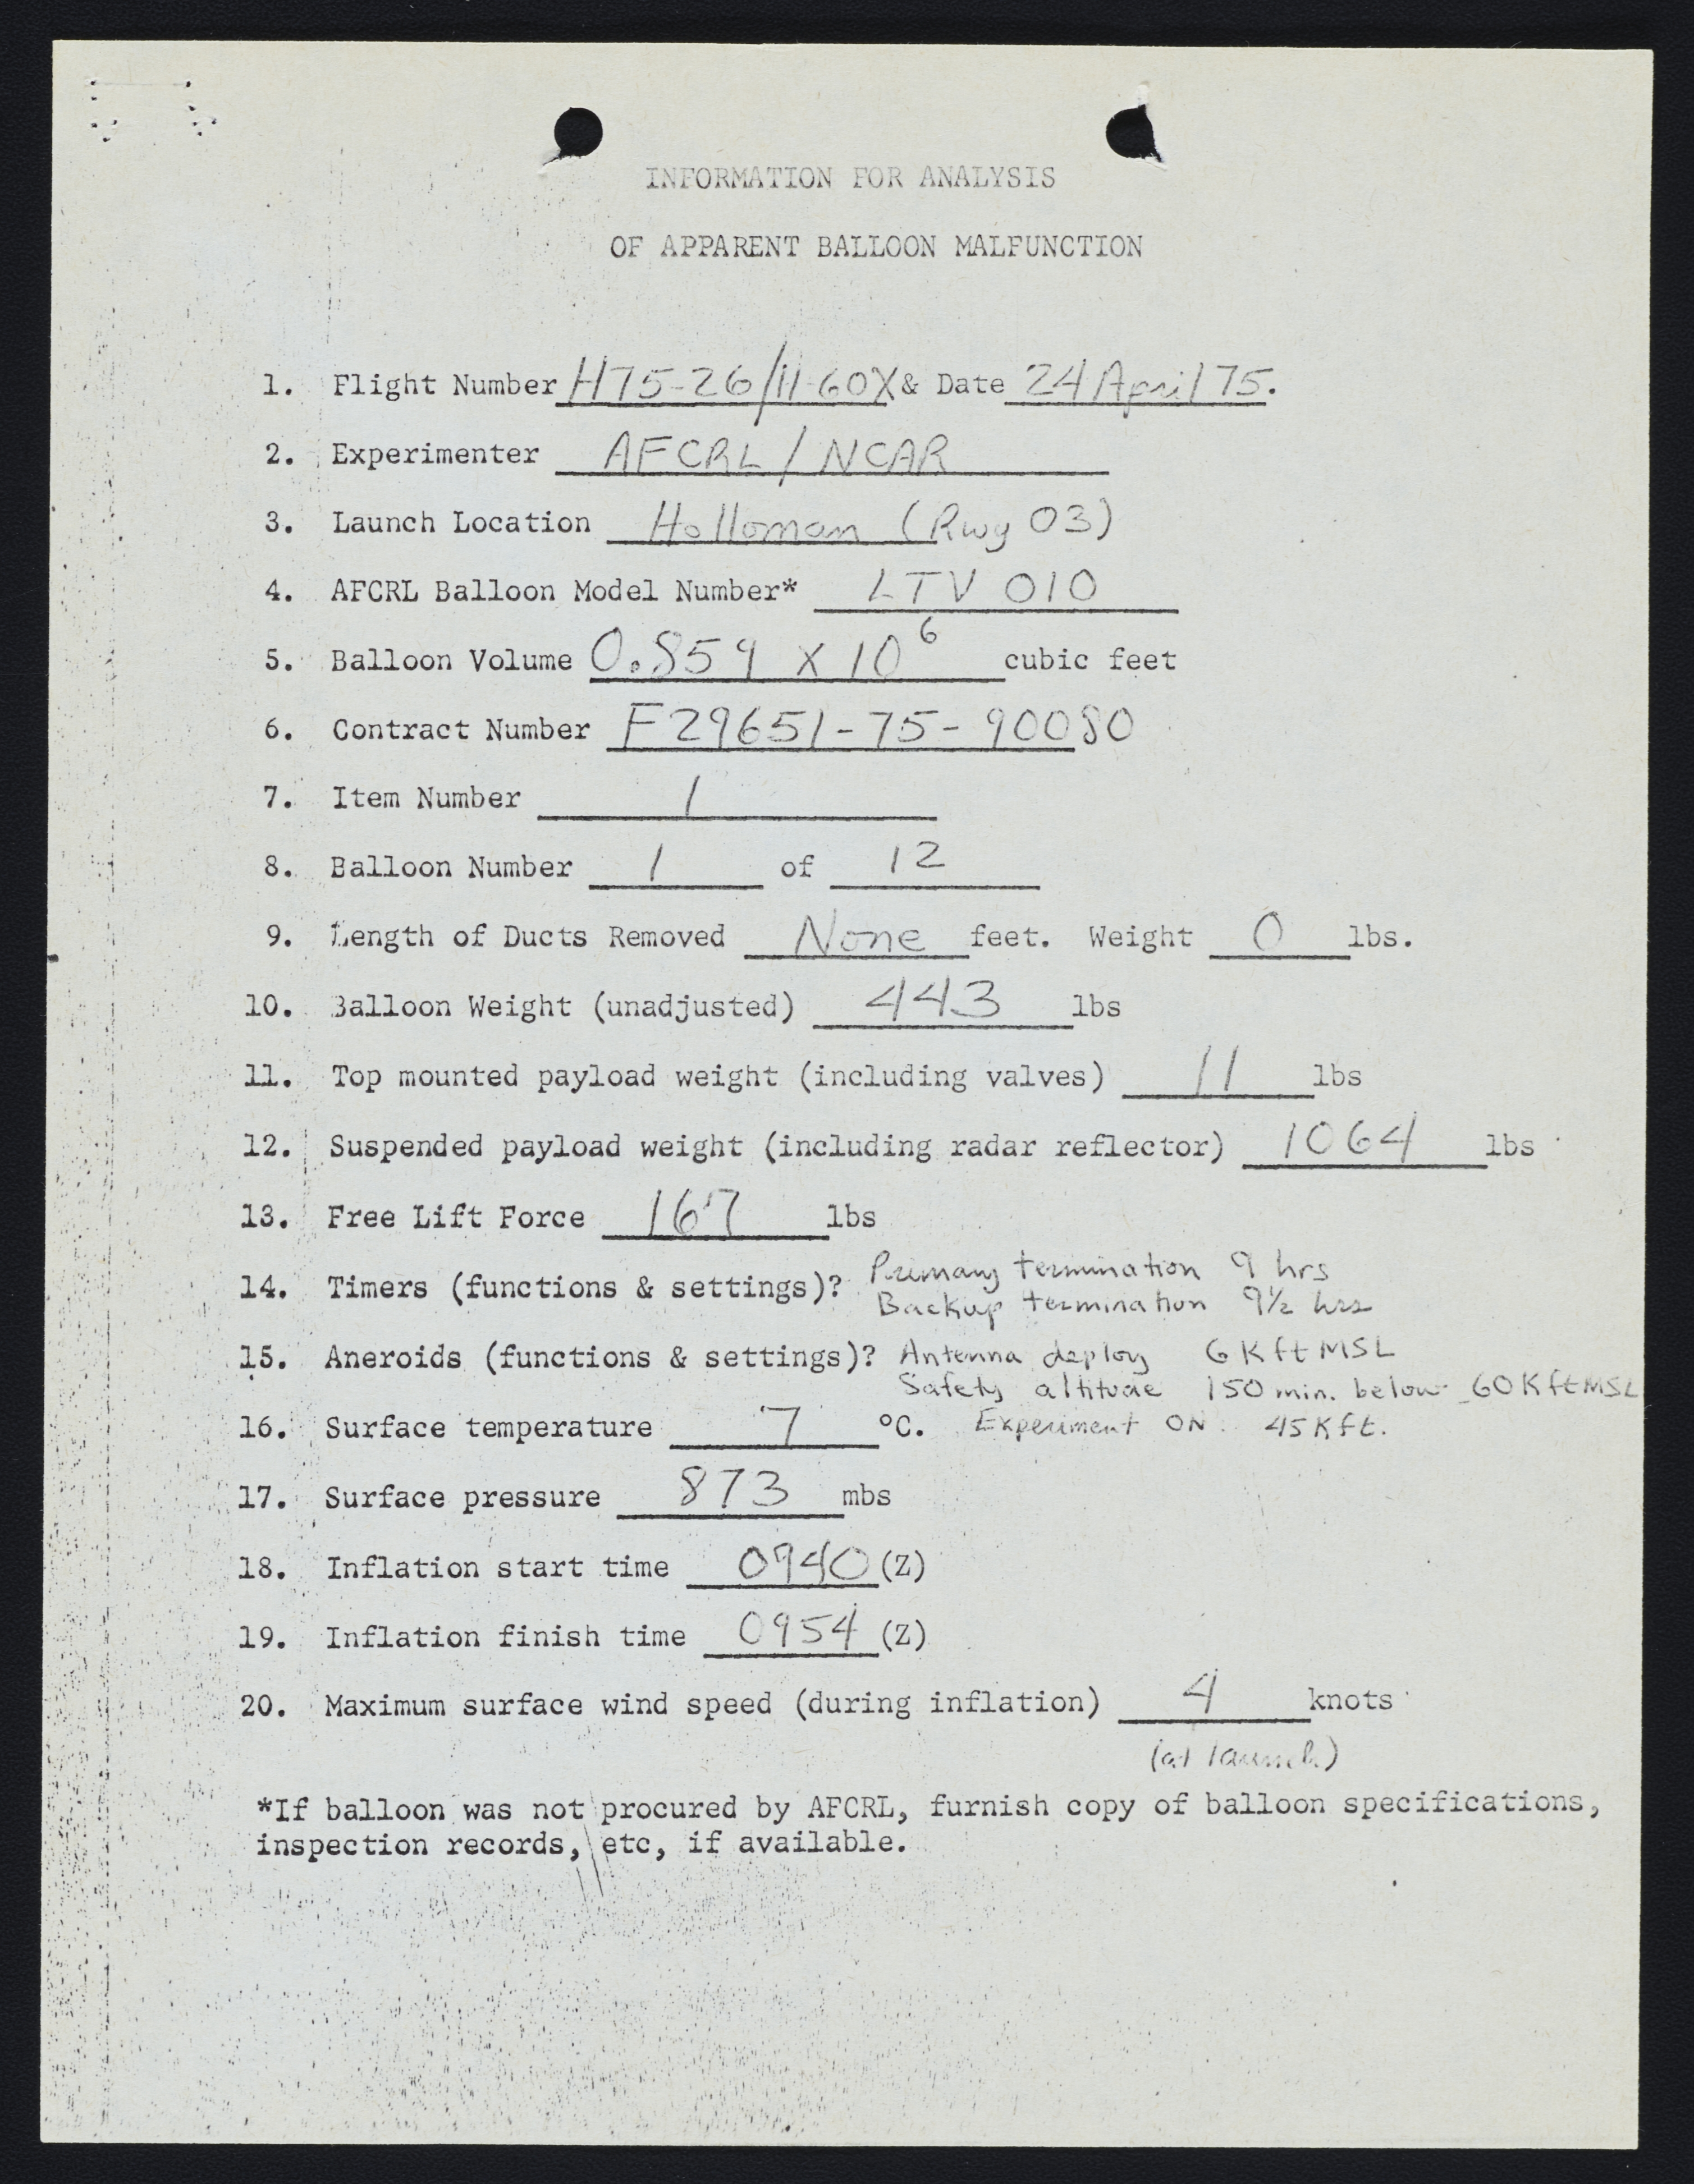 INFORMATION FOR ANALYSIS
OF APPARENT BALLOON MALFUNCTION
1. Flight Number H75-26/11-60X & Date 24 April 75.
2. Experimenter AFCRL / NCAR
3. Launch Location Holloman (Rwy 03)
4. AFCRL Balloon Model Number* LTV 010
5. Balloon Volume 0.859 X 10⁶ cubic feet
6. Contract Number F29651-75-90080
7. Item Number 1
8. Balloon Number 1 of 12
9. Length of Ducts Removed None feet. Weight 0 lbs.
10. Balloon Weight (unadjusted) 443 lbs
11. Top mounted payload weight (including valves) 11 lbs
12. Suspended payload weight (including radar reflector) 1064 lbs
13. Free Lift Force 167 lbs
14. Timers (functions & settings)? Primary termination 9 hrs
Backup termination 9½ hrs
15. Aneroids (functions & settings)? Antenna deploy 6K ft MSL
Safety altitude 150 min. below 60K ft MSL
16. Surface temperature 7 °C. Experiment ON 45K ft.
17. Surface pressure 873 mbs
18. Inflation start time 0940 (Z)
19. Inflation finish time 0954 (Z)
20. Maximum surface wind speed (during inflation) 4 knots
(at launch)
*If balloon was not procured by AFCRL, furnish copy of balloon specifications,
inspection records, etc, if available.